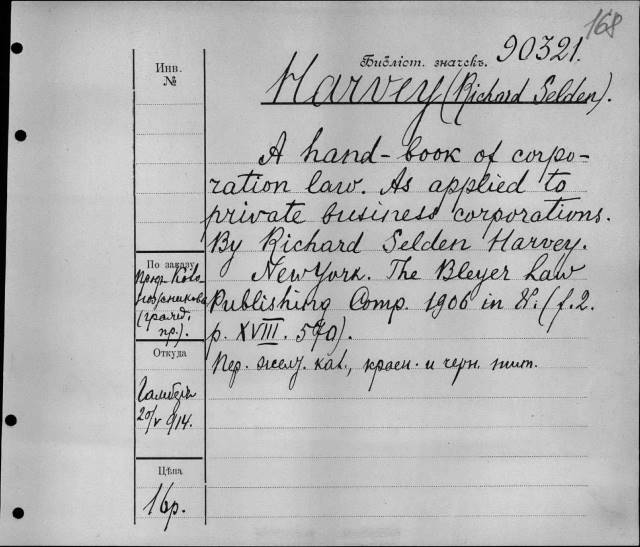 168
Библіот. значекъ. 90321.
Harvey (Richard Selden).
Инв.
№
A hand-book of corpo-
ration law. As applied to
private business corporations.
By Richard Selden Harvey.
New York. The Bleyer Law
Publishing Comp. 1906 in 8°. (f. 2.
p. XVIII. 570).
Пер. желт. кож., красн. и черн. тит.
По заказу
Проф.
(гражд.
пр.).
Откуда
20/V 914.
Цѣна
16р.